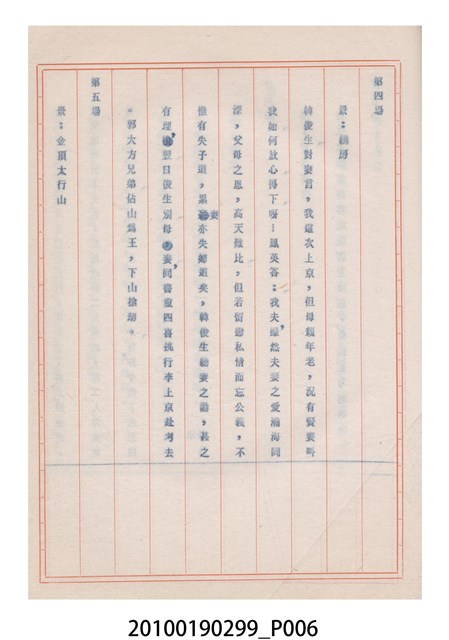 第四場
景：繡房
韓俊生對妻言，我這次上京，但母親年老，況有賢妻叫
我如何放心得下呀！鳳英答：我夫，雖然夫妻之愛瀚海同
深，父母之恩，高天難比，但若留戀私情而忘公義，不
惟有失子道，累妻亦失婦道矣，韓俊生聽妻之勸，甚之
有理，翌日俊生別母妻，同書童四喜挑行李上京赴考去
。郭大方兄弟佔山為王，下山搶劫，
第五場
景：金頂太行山
20100190299_P006